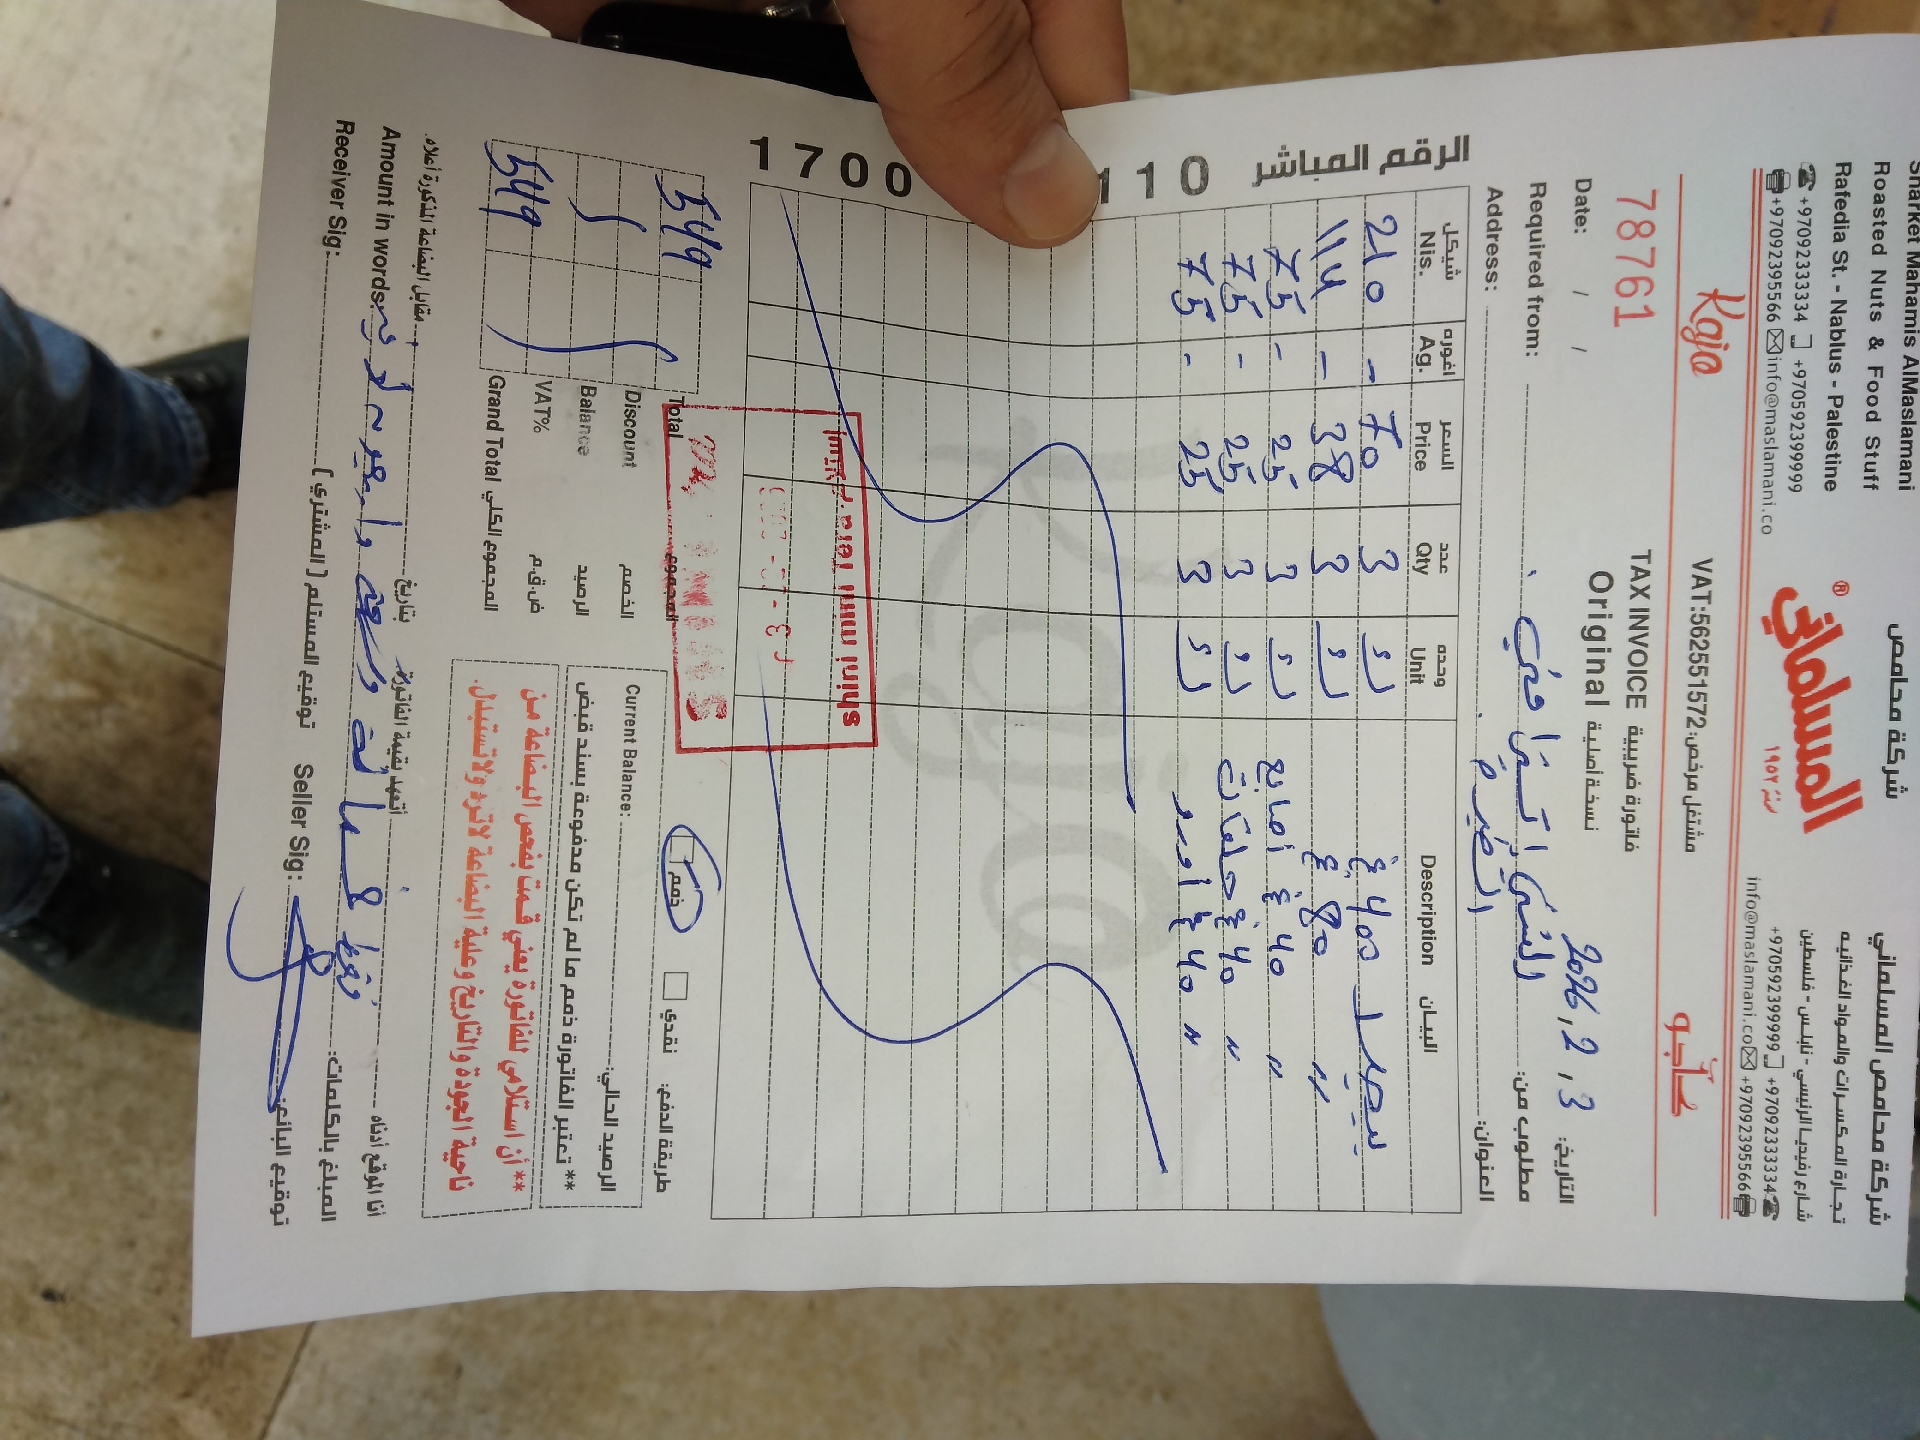 Sharket Mahamis AlMaslamani
Roasted Nuts & Food Stuff
Rafedia St. - Nablus - Palestine
+97092333334 +970592399999
+97092395566 info@maslamani.co
شركة محامص
المسلماني ®
سنة ١٩٥٢
شركة محامص المسلماني
تجارة المكسرات والمواد الغذائية
شارع رفيديا الرئيسي - نابلس - فلسطين
+970592399999 +97092333334
info@maslamani.co +97092395566
Kaja
VAT:562551572 مشتغل مرخص:
كاجو
78761
TAX INVOICE فاتورة ضريبية
Original نسخة أصلية
Date: / / 2026, 2, 3 التاريخ:
Required from: مطلوب من:
Address: العنوان:
الرقم المباشر 110 1700
شيكل Nis. اغوره Ag. السعر Price عدد Qty وحده Unit Description البيان
210 - 70 3 400 غ
114 - 38 3 80 غ "
75 - 25 3 40 غ أصابع "
75 - 25 3 40 غ "
75 - 25 3 40 غ "
549 Total المجموع
Discount الخصم
Balance الرصيد
VAT% ض.ق.م
549 Grand Total المجموع الكلي
طريقة الدفع: نقدي ذمم
Current Balance: الرصيد الحالي:
** تعتبر الفاتورة ذمم ما لم تكن مدفوعة بسند قبض
** أن استلامي للفاتورة يعني قمت بفحص البضاعة من
ناحية الجودة والتاريخ وعلية البضاعة لا ترد ولا تستبدل.
أنا الموقع أدناه أتعهد بقيمة الفاتورة بتاريخ مقابل البضاعة المذكورة أعلاه.
Amount in words: فقط خمسمائة وتسعة وأربعون لا غير المبلغ بالكلمات:
Receiver Sig: توقيع المستلم ( المشتري ) Seller Sig: توقيع البائع: